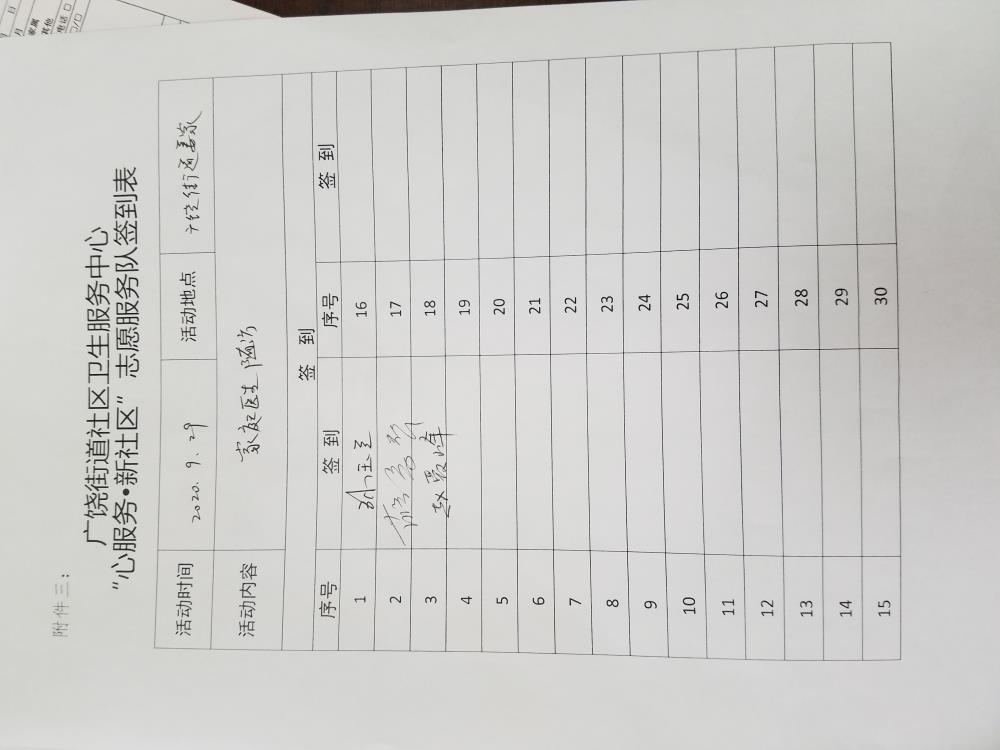 附件三：
广饶街道社区卫生服务中心
“心服务•新社区”志愿服务队签到表
活动时间 2020.9.29 活动地点 广饶街道
活动内容 家庭医生随访
签 到
序号 签 到 序号 签 到
1 16
2 17
3 赵爱峰 18
4 19
5 20
6 21
7 22
8 23
9 24
10 25
11 26
12 27
13 28
14 29
15 30